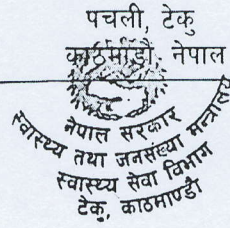 पचली, टेकु
काठमाडौं, नेपाल
नेपाल सरकार
स्वास्थ्य तथा जनसंख्या मन्त्रालय
स्वास्थ्य सेवा विभाग
टेकु, काठमाण्डौ